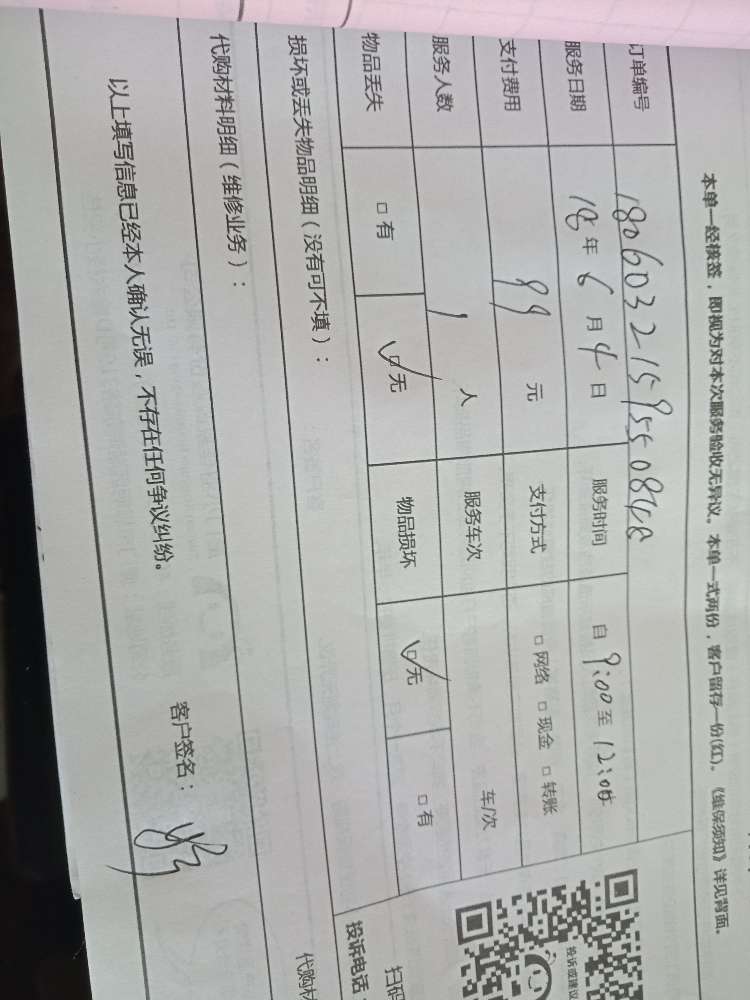 本单一经核签，即视为对本次服务验收无异议。本单一式两份，客户留存一份(红)。《维保须知》详见背面。
订单编号 180603215955084
服务日期 18年6月4日 服务时间 自9:00至12:00
支付费用 99元 支付方式 □网络 □现金 □转账
服务人数 1人 服务车次 车/次
物品丢失 □有 ☑无 物品损坏 ☑无 □有
损坏或丢失物品明细（没有可不填）：
代购材料明细（维修业务）：
以上填写信息已经本人确认无误，不存在任何争议纠纷。
客户签名：
投诉或建议
扫码
投诉电话
代购材